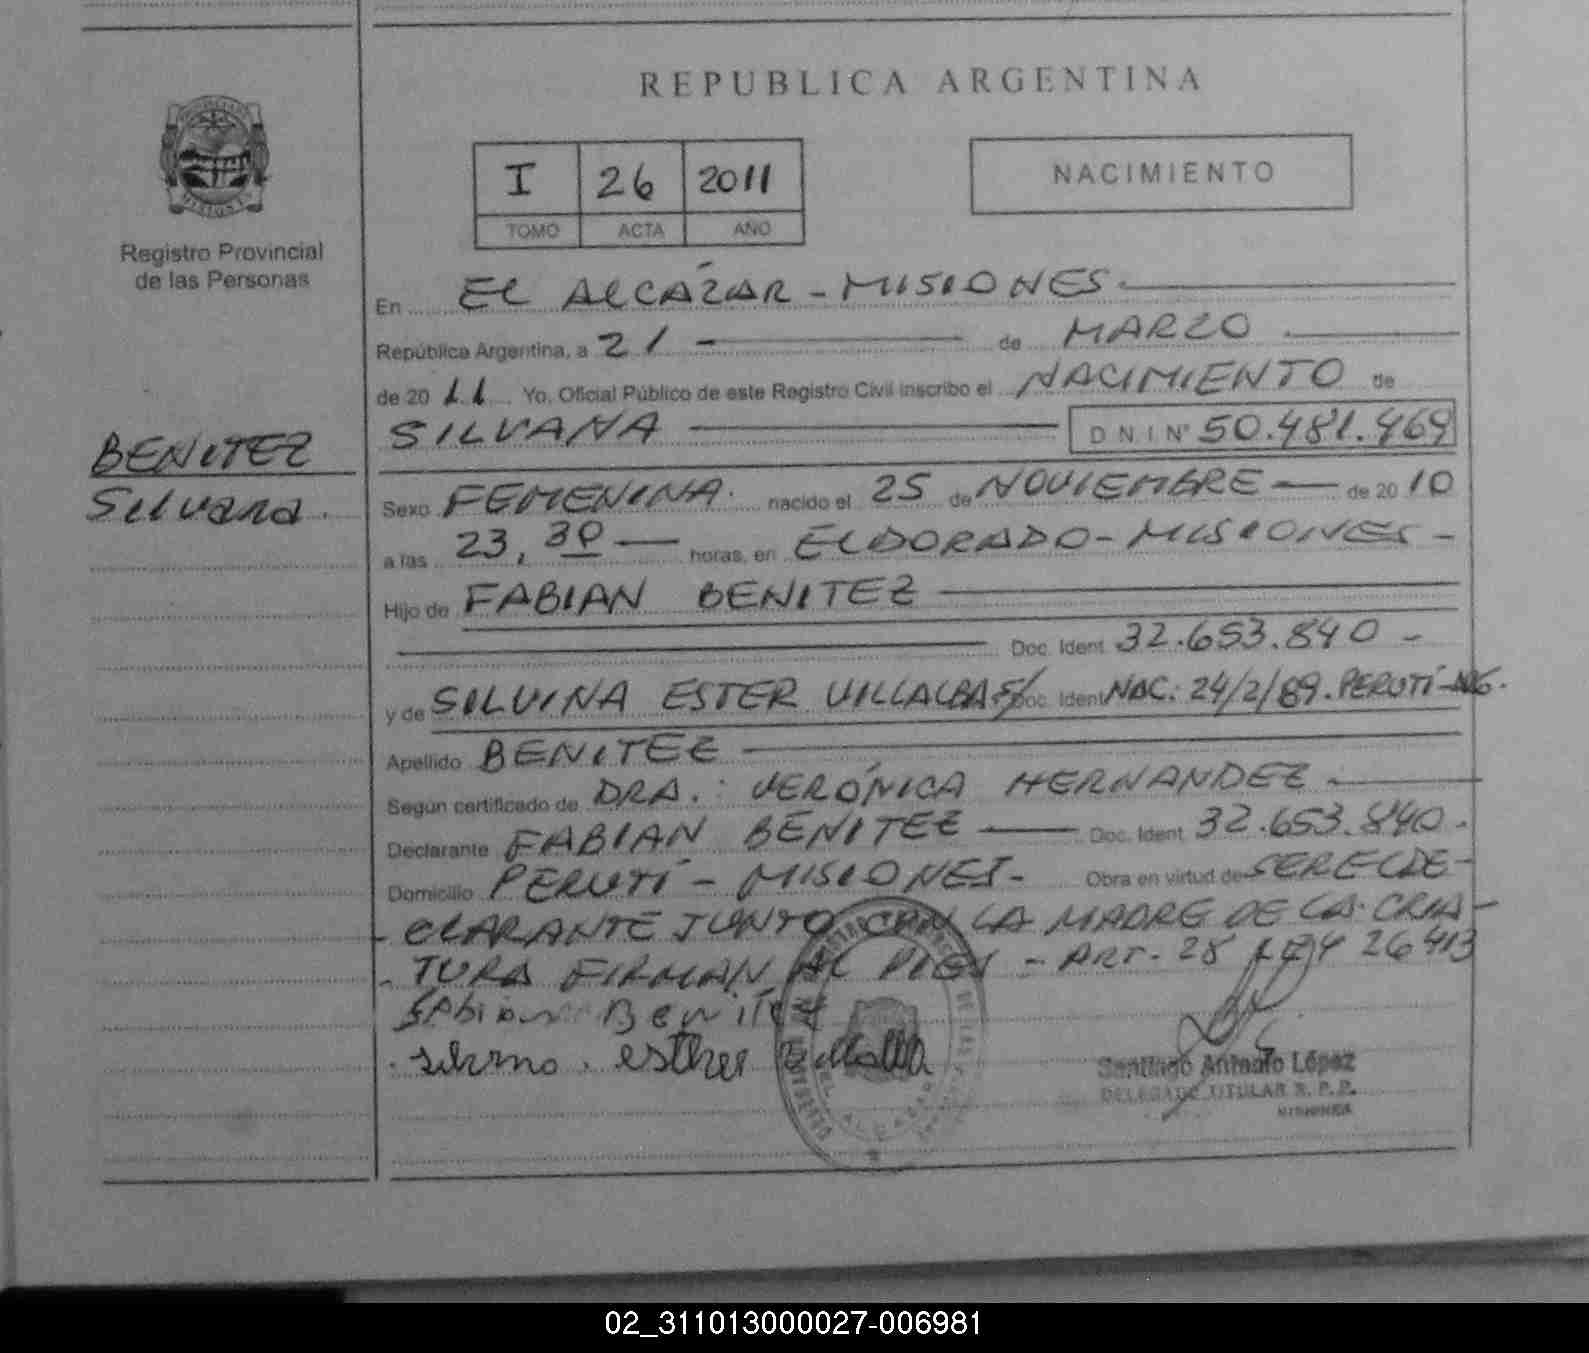 REPUBLICA ARGENTINA
I 26 2011
TOMO ACTA AÑO
NACIMIENTO
Registro Provincial
de las Personas
En EL ALCÁZAR - MISIONES
República Argentina, a 21 de MARZO
de 2011 Yo, Oficial Público de este Registro Civil inscribo el NACIMIENTO de
SILVANA D N I Nº 50.481.469
BENITEZ
Silvana.
Sexo FEMENINA. nacido el 25 de NOVIEMBRE de 2010
a las 23,30 horas, en ELDORADO - MISIONES -
Hijo de FABIAN BENITEZ
Doc. Ident. 32.653.840 -
y de SILVINA ESTER VILLALBA Doc. Ident. NAC: 24/2/89. PERUTÍ -
Apellido BENITEZ
Según certificado de DRA.: VERÓNICA HERNANDEZ
Declarante FABIAN BENITEZ Doc. Ident. 32.653.840.
Domicilio PERUTÍ - MISIONES - Obra en virtud de SER EL DE-
CLARANTE JUNTO CON LA MADRE DE LA CRIA-
TURA FIRMAN AL PIE - ART. 28 LEY 26413
Fabian Benitez
esther
Santiago Antonio López
DELEGADO TITULAR R. P. P.
MISIONES
02_311013000027-006981